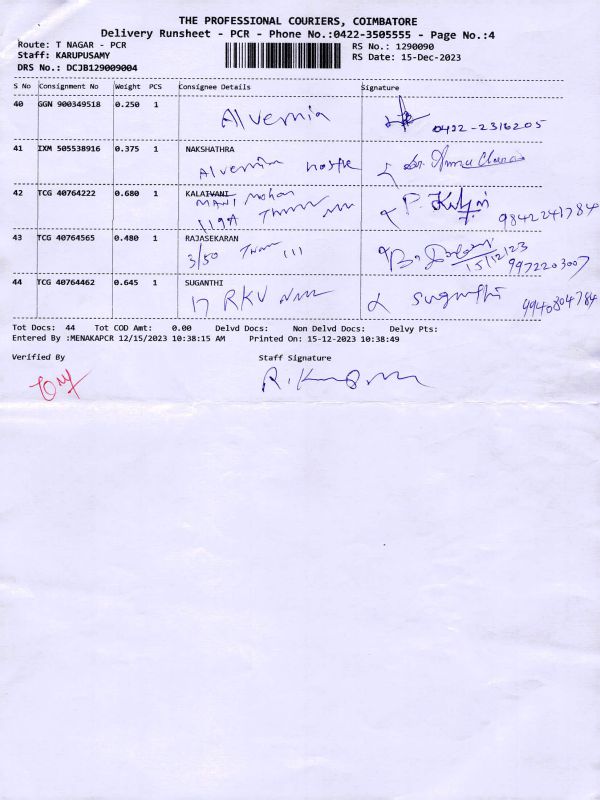 THE PROFESSIONAL COURIERS, COIMBATORE
Delivery Runsheet - PCR - Phone No.:0422-3505555 - Page No.:4
Route: T NAGAR - PCR RS No.: 1290090
Staff: KARUPUSAMY RS Date: 15-Dec-2023
DRS No.: DCJB129009004
S No Consignment No Weight PCS Consignee Details Signature
40 GGN 900349518 0.250 1
Alvernia 0422-2316205
41 IXM 505538916 0.375 1 NAKSHATHRA
Alvernia
42 TCG 40764222 0.680 1 KALAIVANI Mohan
MANI
119A 9842241784
43 TCG 40764565 0.480 1 RAJASEKARAN
3/50 111 15/12/23
9972203007
44 TCG 40764462 0.645 1 SUGANTHI
17 RKV Suganthi 9940804784
Tot Docs: 44 Tot COD Amt: 0.00 Delvd Docs: Non Delvd Docs: Delvy Pts:
Entered By :MENAKAPCR 12/15/2023 10:38:15 AM Printed On: 15-12-2023 10:38:49
Verified By Staff Signature